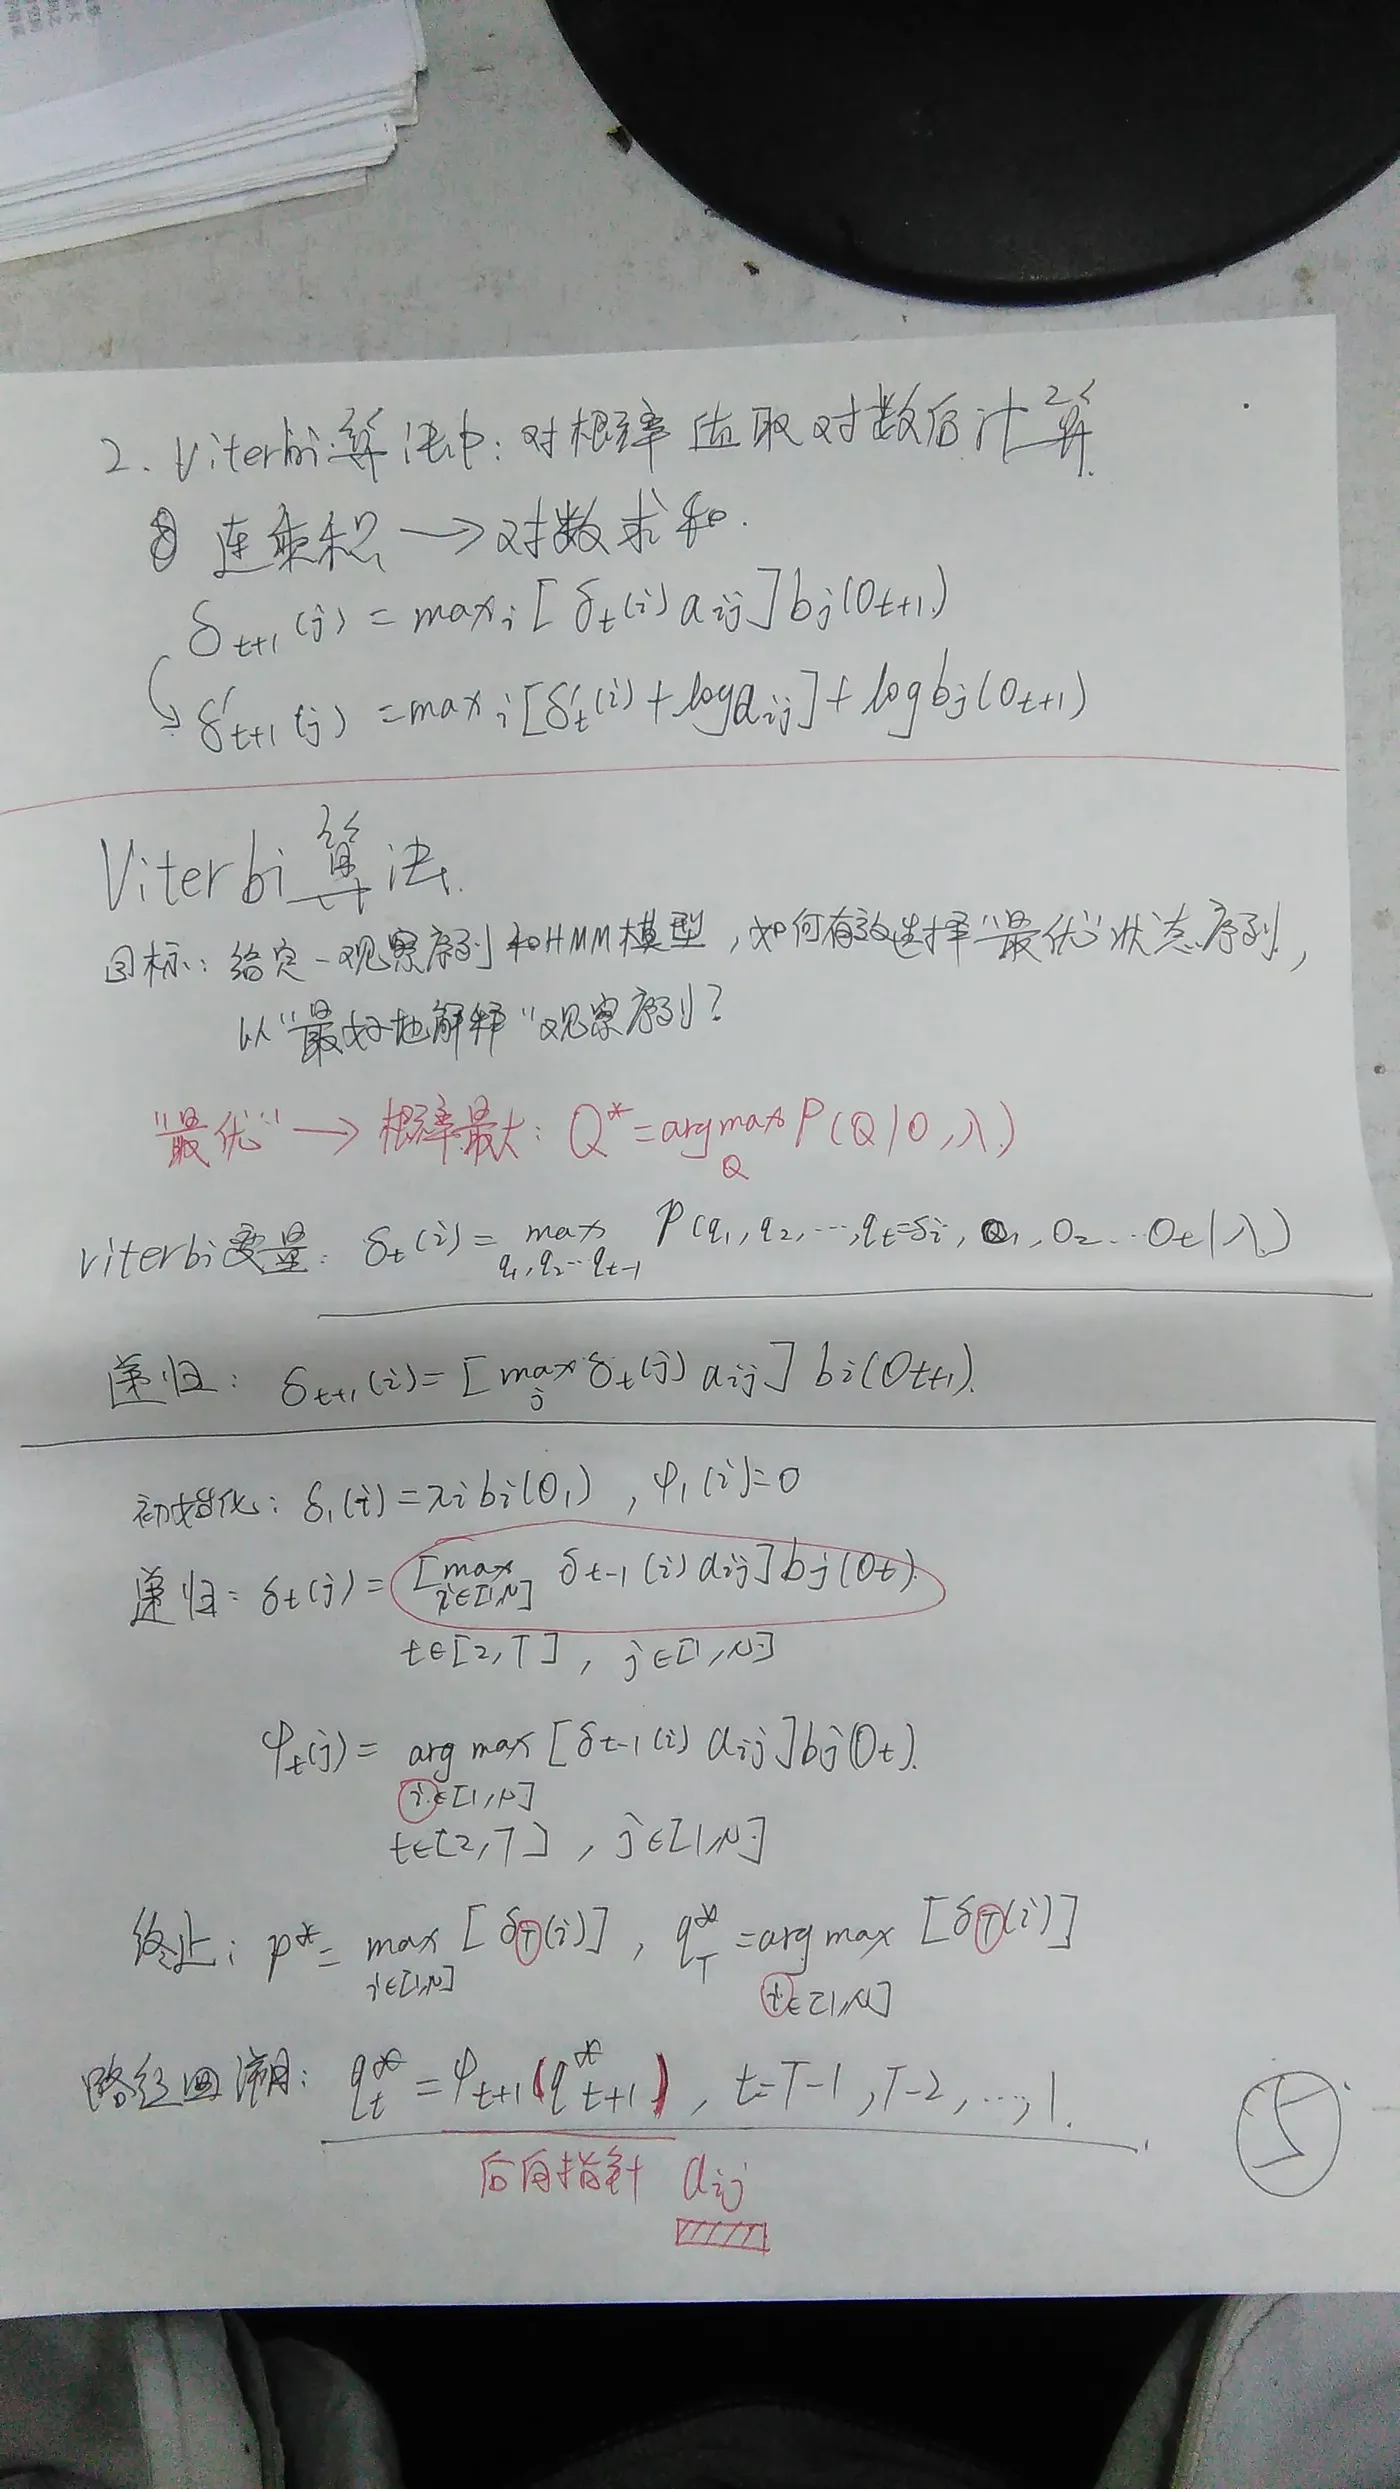 2. Viterbi算法中:对概率值取对数后计算
连乘积 → 对数求和.
δt+1(j) = maxi[δt(i)aij]bj(Ot+1)
δ't+1(j) = maxi[δ't(i)+logaij]+logbj(Ot+1)
Viterbi算法.
目标:给定一观察序列和HMM模型,如何有效选择"最优"状态序列,
以"最好地解释"观察序列?
"最优" → 概率最大: Q* = argmax P(Q|O,λ)
Q
Viterbi变量: δt(i) = max P(q1,q2,...,qt=δi, O1,O2...Ot|λ)
q1,q2...qt-1
递归: δt+1(i) = [max δt(j) aij] bi(Ot+1).
j
初始化: δ1(i) = πi bi(O1), φ1(i)=0
递归: δt(j) = [max δt-1(i) aij] bj(Ot).
i∈[1,N]
t∈[2,T], j∈[1,N]
φt(j) = arg max [δt-1(i) aij] bj(Ot).
i∈[1,N]
t∈[2,T], j∈[1,N]
终止: p* = max [δT(i)], qT* = arg max [δT(i)]
i∈[1,N] i∈[1,N]
路径回溯: qt* = φt+1(q*t+1), t=T-1,T-2,...,1.
后向指针 aij
5